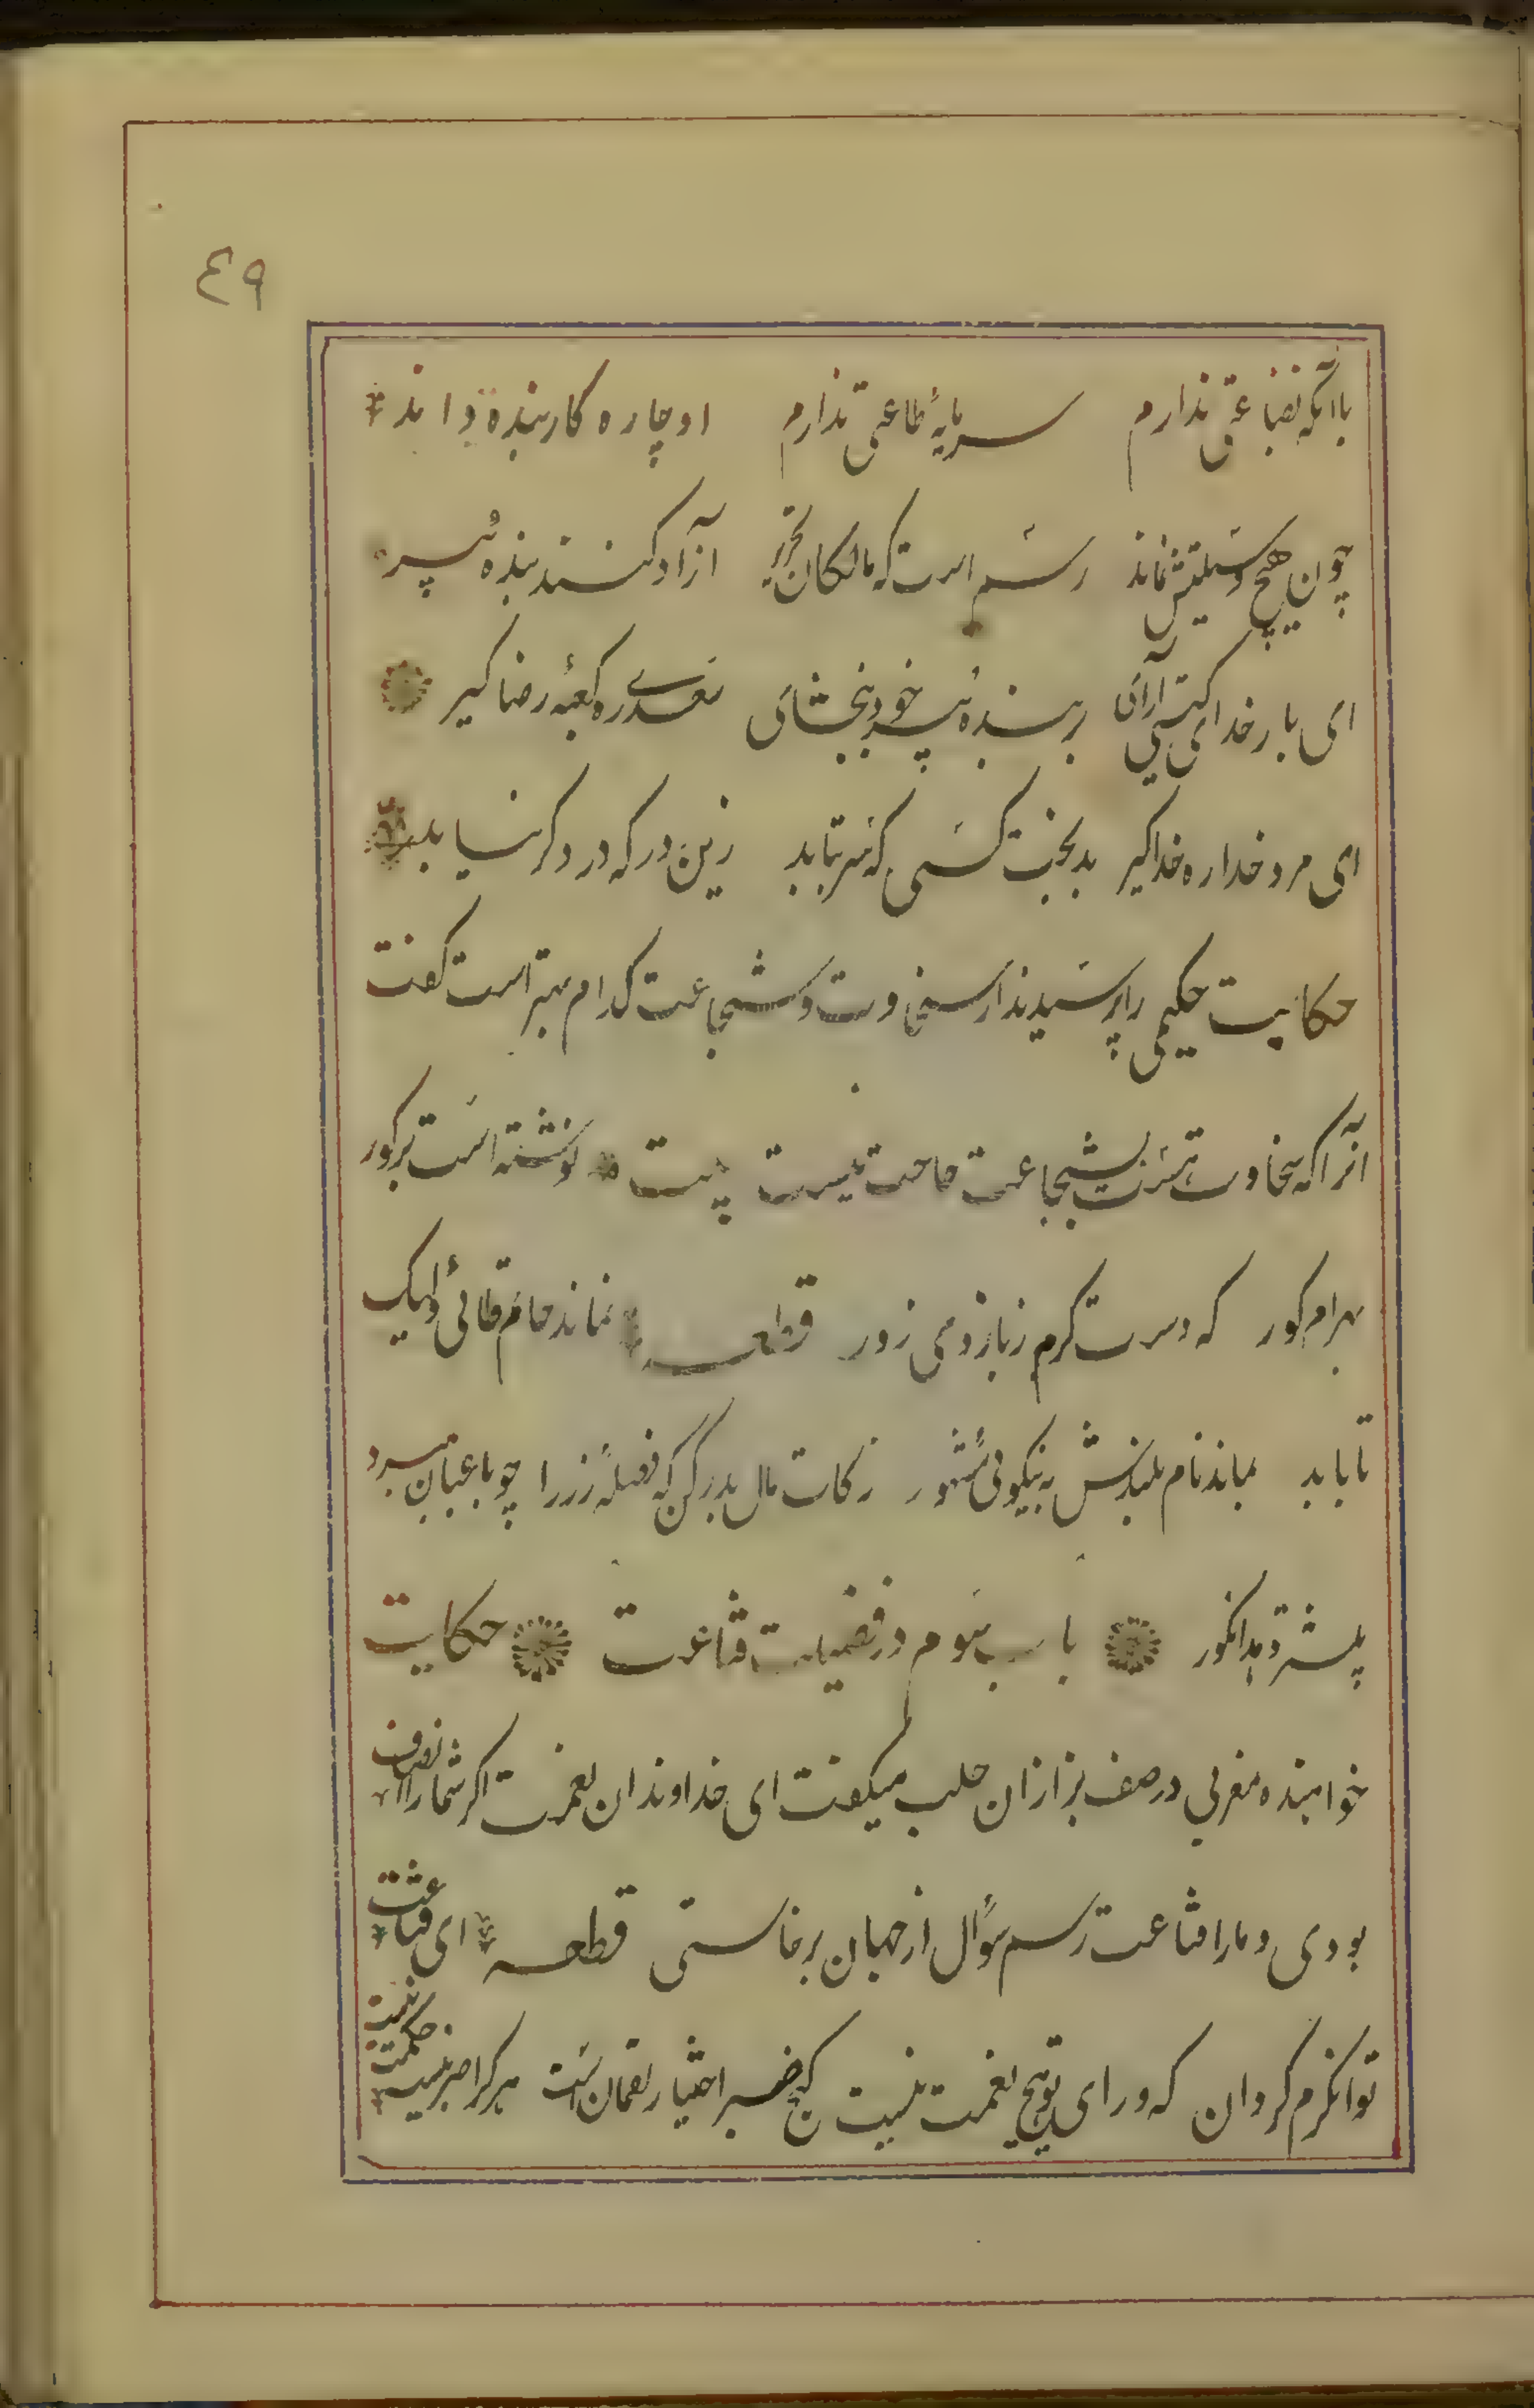 ٤٩
باآنکه بضاعتی ندارم سرمایهٔ طاعتی ندارم او چاره کار بنده داند
چون هیچ وسیلتش نماند رسم است که مالکان تحریر آزاد کنند بندهٔ پیر
ای بار خدای گیتی آرای بر بندهٔ پیر خود ببخشای سعدی ره کعبهٔ رضا گیر
ای مرد خدا ره خدا گیر بدبخت کسی که سر بتابد زین در که در دگر نیابد
حکایت حکیمی را پرسیدند از سخاوت و شجاعت کدام بهتر است گفت
آنرا که سخاوتست بشجاعت حاجت نیست بیت نوشته است بر گور
بهرام گور که دست کرم ز بازوی زور قطعه نماند حاتم طائی ولیک
تا بابد بماند نام بلندش به نیکوئی مشهور زکات مال بدر کن که فضلهٔ رز را چو باغبان ببرد
بیشتر دهد انگور باب سوم در فضیلت قناعت حکایت
خواهنده مغربی در صف بزازان حلب میگفت ای خداوندان نعمت اگر شما را انصاف
بودی و ما را قناعت رسم سؤال از جهان برخاستی قطعه ای قناعت
توانگرم گردان که ورای تو هیچ نعمت نیست کنج صبر اختیار لقمان است هر کرا صبر نیست حکمت نیست